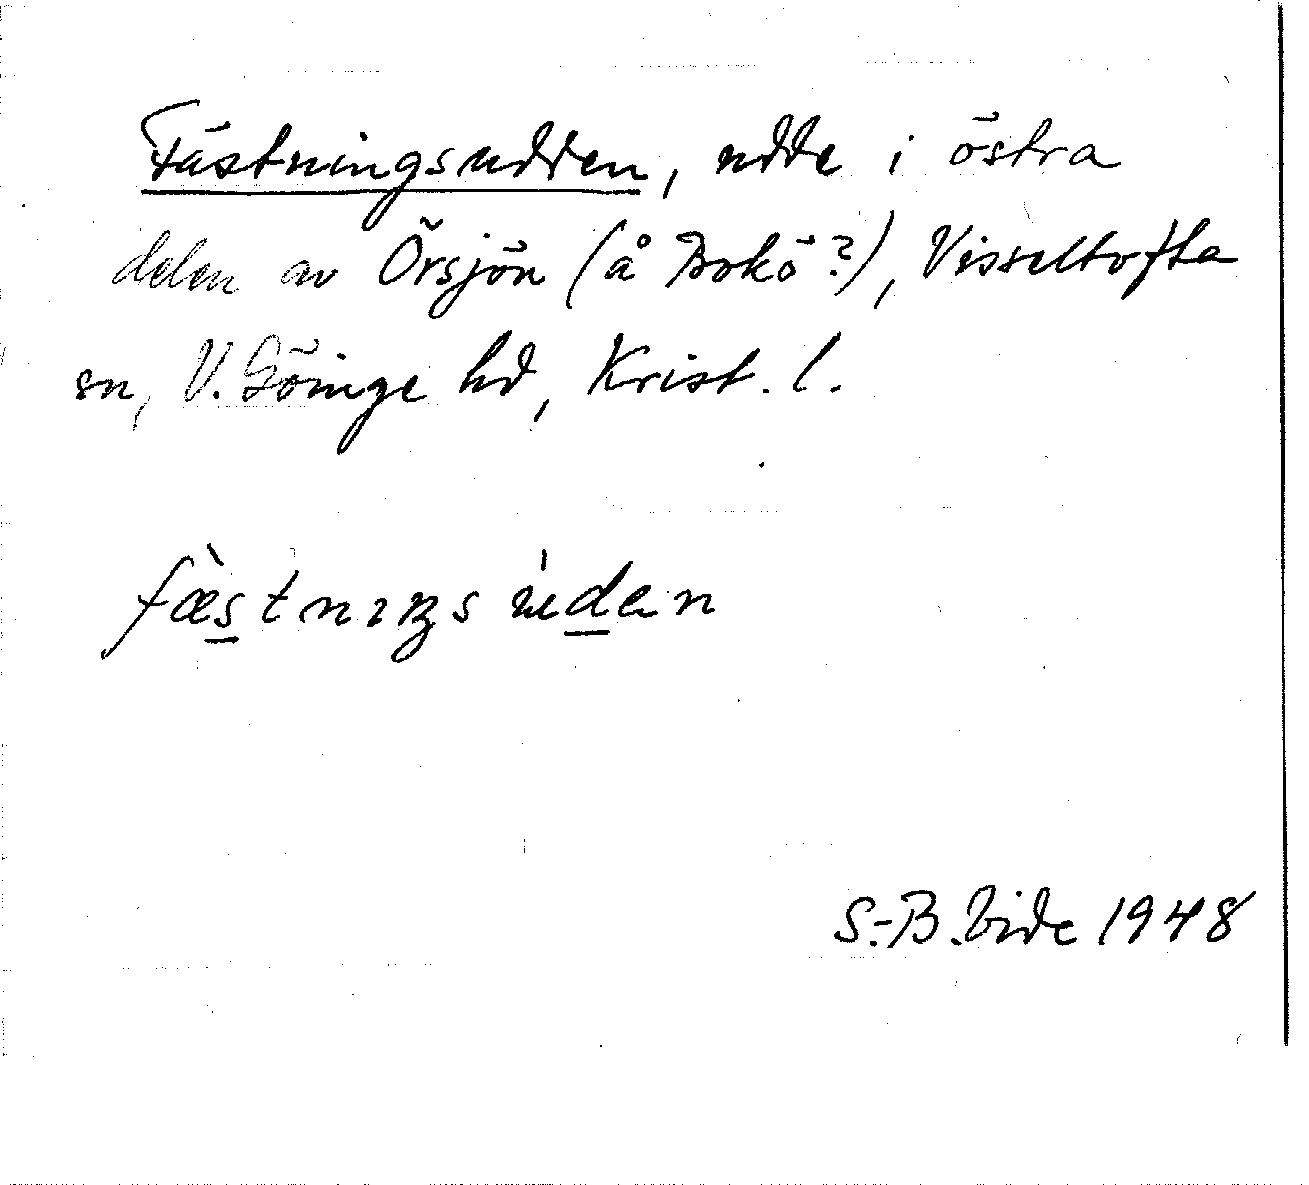 Fästningsudden, udde i östra
delen av Örsjön (å Bokö?), Visseltofta
sn, V. Göinge hd, Krist. l.
fæ̀stnıŋsùden
S.-B. Vide 1948